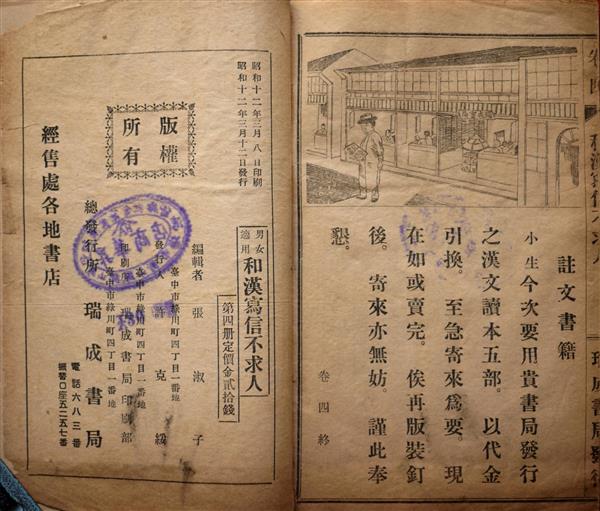 註文書籍
小生今次要用貴書局發行
之漢文讀本五部。以代金
引換。至急寄來爲要。現
在如或賣完。俟再版裝釘
後。寄來亦無妨。謹此奉
懇。
卷四終
昭和十二年三月八日印刷
昭和十二年三月十二日發行
版權
所有
男女
適用
和漢寫信不求人
第四册定價金貳拾錢
編輯者 張淑子
臺中市綠川町四丁目一番地
發行人 許克綏
臺中市綠川町四丁目一番地
印刷所 瑞成書局印刷部
臺中市綠川町四丁目一番地
總發行所 瑞成書局
電話六八三番
振替口座五二五七番
經售處各地書店